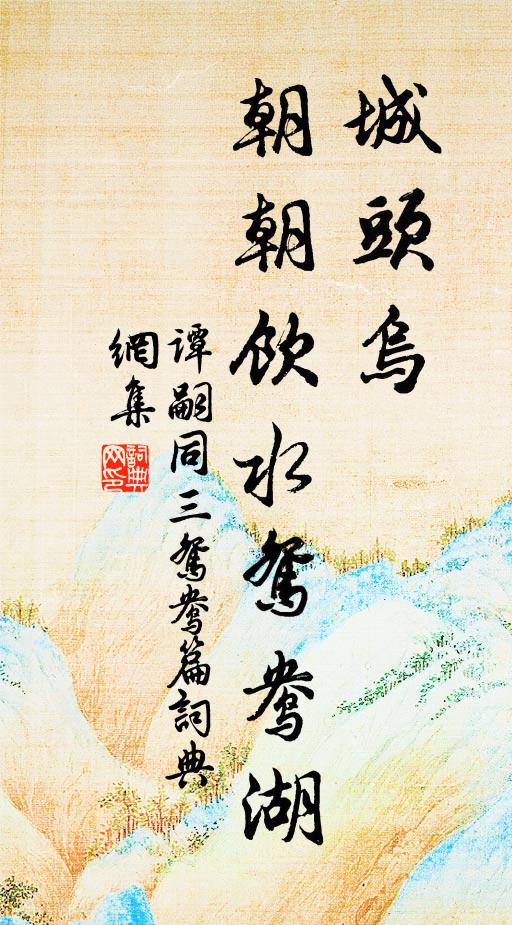 城頭烏
朝朝飲水鴛鴦湖
譚嗣同三鴛鴦篇詞典
網集
詞典
网印